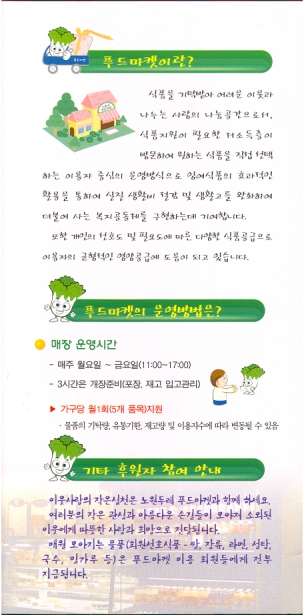 푸드마켓이란?
식품을 기탁받아 어려운 이웃과
나누는 사랑의 나눔공간으로서,
식품지원이 필요한 저소득층이
방문하여 원하는 식품을 직접 선택
하는 이용자 중심의 운영방식으로 잉여식품의 효과적인
활용을 통하여 실질 생활비 절감 및 생활고를 완화하여
더불어 사는 복지공동체를 구현하는데 기여합니다.
또한 개인의 선호도 및 필요도에 따른 다양한 식품공급으로
이용자의 균형적인 영양공급에 도움이 되고 있습니다.
푸드마켓의 운영방법은?
매장 운영시간
- 매주 월요일 ~ 금요일(11:00~17:00)
- 3시간은 개장준비(포장, 재고 입고관리)
▶ 가구당 월1회(5개 품목)지원
· 물품의 기탁량, 유통기한, 재고량 및 이용자수에 따라 변동될 수 있음
기타 후원자 참여 안내
이웃사랑의 작은실천은 노원두레 푸드마켓과 함께 하세요.
여러분의 작은 관심과 아름다운 손길들이 모아져 소외된
이웃에게 따뜻한 사랑과 희망으로 전달됩니다.
매월 모아지는 물품(회원선호식품 - 쌀, 간장, 라면, 설탕,
국수, 밀가루 등)은 푸드마켓 이용 회원들에게 전부
지급됩니다.